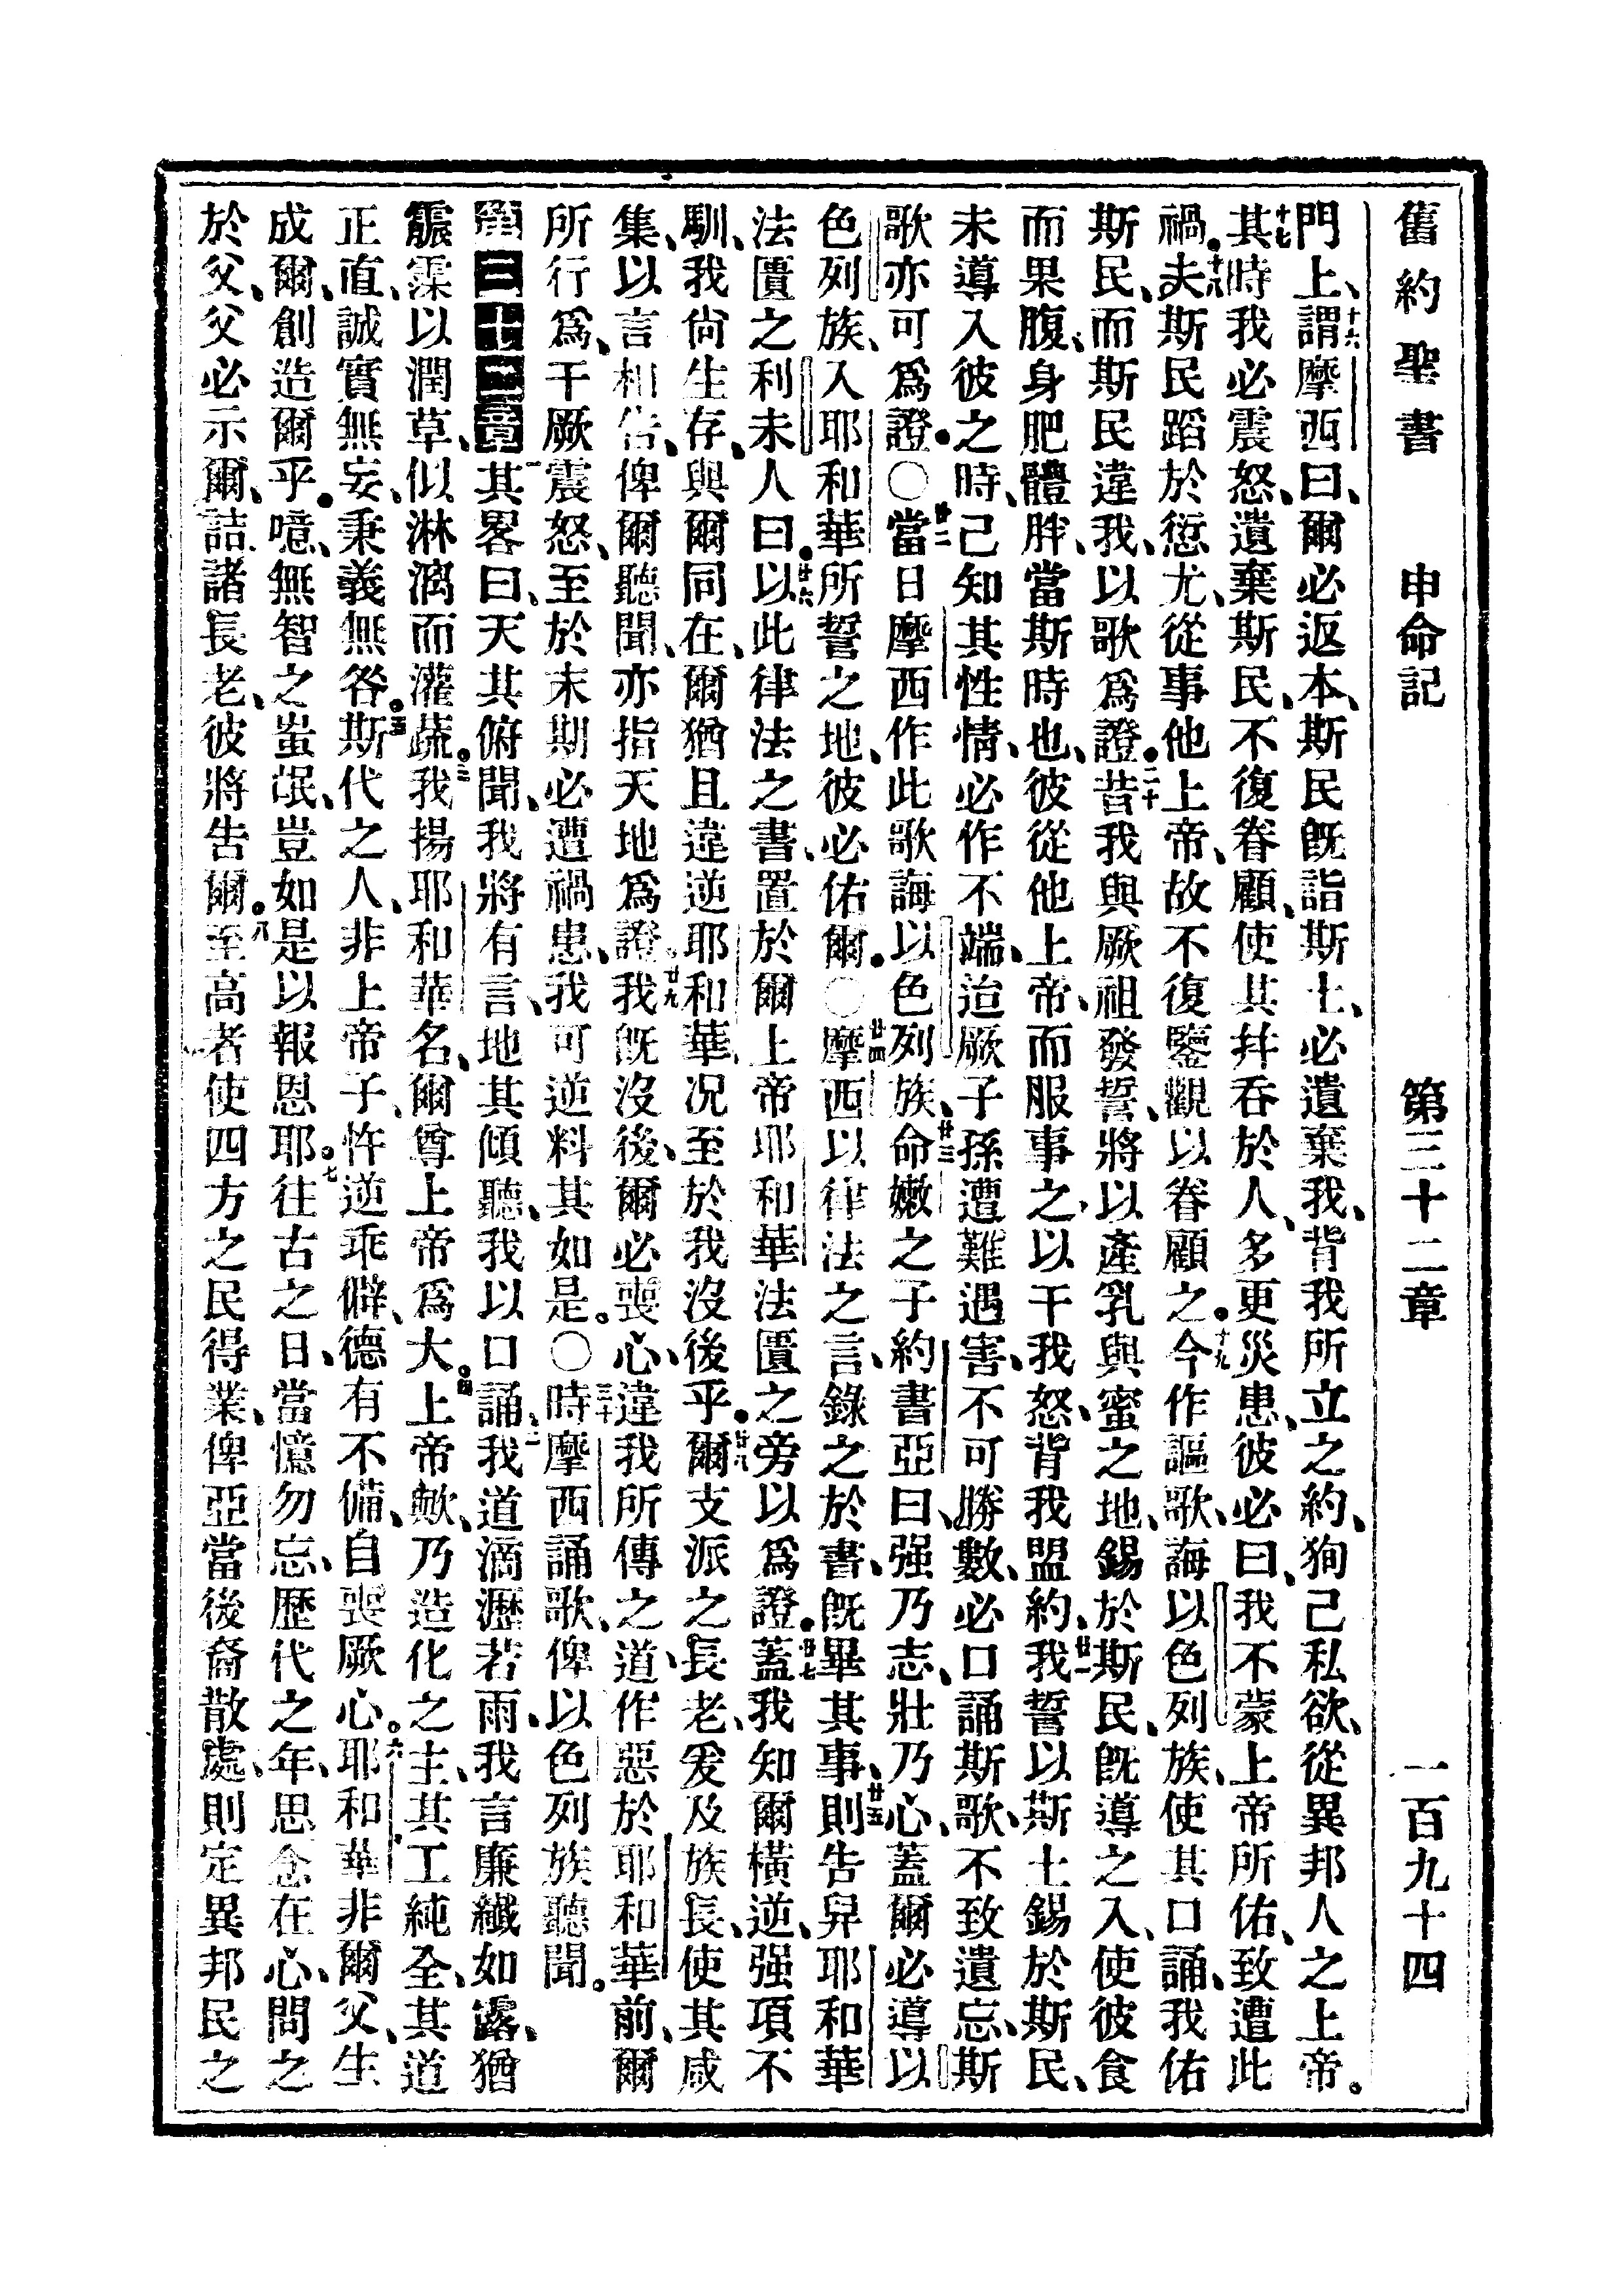 舊約聖書 申命記 第三十二章 一百九十四
門上、十六謂摩西曰、爾必返本、斯民旣詣斯土、必遺棄我、背我所立之約、狥己私欲、從異邦人之上帝。
十七其時我必震怒、遺棄斯民、不復眷顧、使其幷吞於人、多更災患、彼必曰、我不蒙上帝所佑、致遭此
禍。十八夫斯民蹈於愆尤、從事他上帝、故不復鑒觀以眷顧之。十九今作謳歌、誨以色列族、使其口誦、我佑
斯民、而斯民違我、以歌爲證。二十昔我與厥祖發誓、將以產乳與蜜之地、錫於斯民、旣導之入、使彼食
而果腹、身肥體胖、當斯時也、彼從他上帝、而服事之、以干我怒、背我盟約、廿一我誓以斯土錫於斯民、
未導入彼之時、己知其性情、必作不端、迨厥子孫遭難遇害、不可勝數、必口誦斯歌、不致遺忘、斯
歌亦可爲證。○廿二當日摩西作此歌誨以色列族、廿三命嫩之子約書亞曰、强乃志、壯乃心、蓋爾必導以
色列族、入耶和華所誓之地、彼必佑爾。○廿四摩西以律法之言、錄之於書、旣畢其事、廿五則告舁耶和華
法匱之利未人曰。廿六以此律法之書、置於爾上帝耶和華法匱之旁以爲證。廿七蓋我知爾橫逆、强項不
馴、我尙生存、與爾同在、爾猶且違逆耶和華、况至於我沒後乎。廿八爾支派之長老、爰及族長、使其咸
集、以言相告、俾爾聽聞、亦指天地爲證。廿九我旣沒後、爾必喪心、違我所傳之道、作惡於耶和華前、爾
所行爲、干厥震怒、至於末期必遭禍患、我可逆料其如是。○三十時摩西誦歌、俾以色列族聽聞。
第三十二章 一其畧曰、天其俯聞、我將有言、地其傾聽、我以口誦、二我道滴瀝若雨、我言廉纖如露、猶
霢霂以潤草、似淋漓而灌蔬。三我揚耶和華名、爾尊上帝爲大。四上帝歟、乃造化之主、其工純全、其道
正直、誠實無妄、秉義無咎。五斯代之人、非上帝子、忤逆乖僻、德有不備、自喪厥心。六耶和華非爾父、生
成爾、創造爾乎。噫、無智之蚩氓、豈如是以報恩耶。七往古之日、當憶勿忘、歷代之年、思念在心、問之
於父、父必示爾、詰諸長老、彼將告爾。八至高者使四方之民得業、俾亞當後裔散處、則定異邦民之